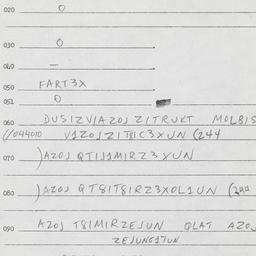 020 0
030 0
040 —
050 FART3X
051 0
060 DUSIZVIAZOJ ZITRUKT MOLBIS
(/044010 V1ZOJZITBIC3XUN (244
070 )AZOJ QTIJ1MIRZ3XUN
080 )AZOJ QTSITSIRZ3XOL1UN (244
090 AZOJ TSIMIRZEJUN QLAT AZOJ
ZEJUNG1TUN